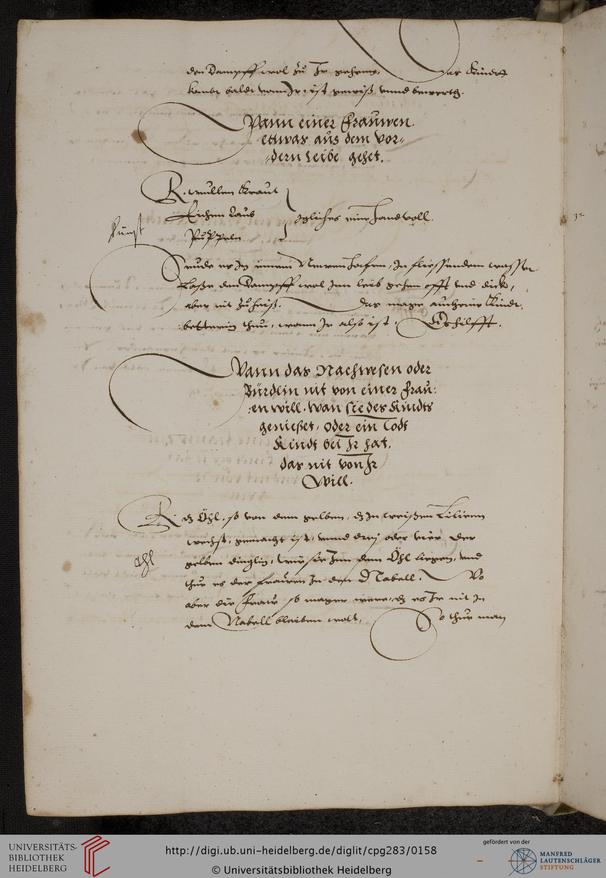 den Dampff wol zu Ir gehenn, das Kindt
kombt baldt vonn Ir, ist gewiß vnnd bewerth.
Wann einer Frauwen
ettwas aus dem vor-
dern Leibe gehet.
R. wullen Kraut
Eichen Laub
Pappeln
ygliches ein Handtvoll
Seude es In einem Newen Hafen, In fliessendem wasser
Laße den Dampff wol Inn leib gehen offt vnd dick,
aber nit zu heiß. Das mage auch ein Kindt-
betterin thun, wann Ir also ist. Es hilfft.
Wann das Nachwesen oder
Bürdlin nit von einer Frau-
en will, wan sie des Kindts
genießet, oder ein Todt
Kindt bei Ir hat,
das nit von Ir
Will.
R. dz Öhl, so von dem gelben, dz In weißen Lilienn
wechst, gemacht ist, vnnd drey oder vier der
gelben dinglin, wie sie Inn dem Öhl liegen, vnd
thue es der Frauwen In den Nabell. Wo
aber die Fraw so mager were, dz es Ir nit In
dem Nabell bleiben wolt, So thue man
UNIVERSITÄTS-
BIBLIOTHEK
HEIDELBERG
http://digi.ub.uni-heidelberg.de/diglit/cpg283/0158
© Universitätsbibliothek Heidelberg
gefördert von der
MANFRED
LAUTENSCHLÄGER
STIFTUNG